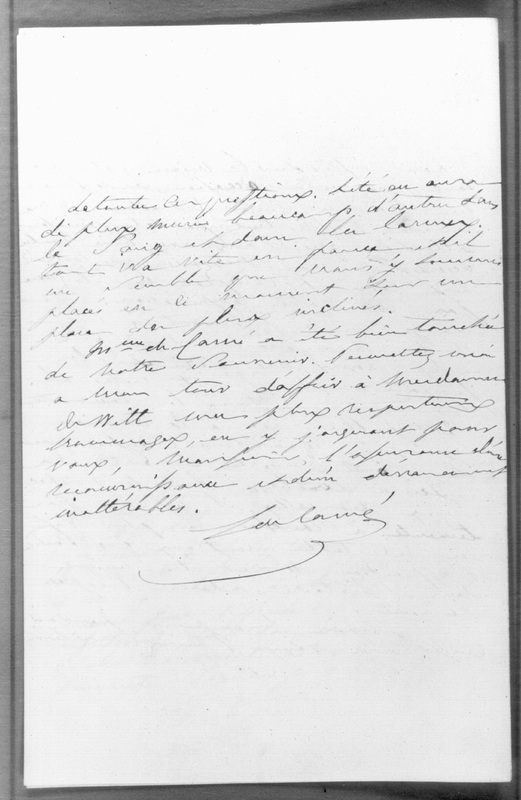 de toutes ces questions. L'été en aura
de plus mûries beaucoup d'autres dans
le sang et dans les larmes.
tout va vite en france et il
me semble que nous y sommes
placés en ce moment sur un
plan des plus inclinés.
Mme de Carné a été bien touchée
de votre souvenir. Permettez moi
a mon tour d'offrir à Mesdames
de Witt mes plux respectueux
hommages, en y joignant pour
vous, Monsieur, l'assurance d'une
reconnaissance et d'un dévouement
inaltérables.
L. de Carné